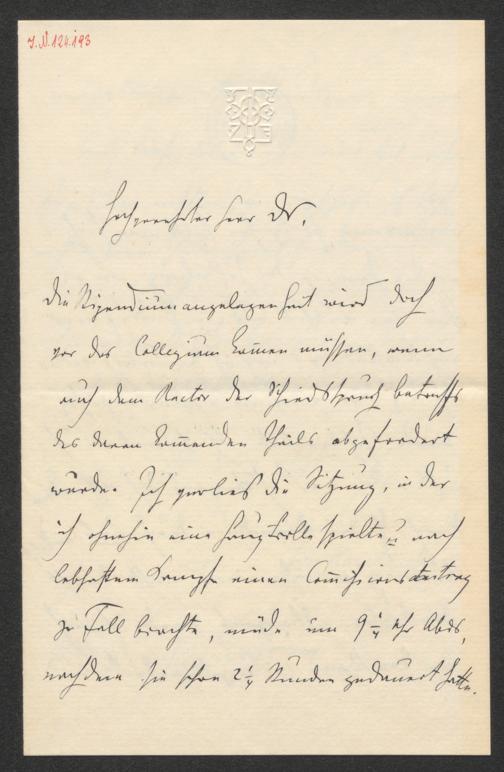 J.N. 124.193
Hochgeehrter Herr Dr,
die Stipendiumangelegenheit wird doch
vor das Collegium kom̅en müssen, wenn
auch dem Rector der Schiedspruch betreffs
des daran kom̅enden Theils abgefordert
wurde. Ich verließ die Sitzung, in der
ich ohnehin eine Hauptrolle spielte u nach
lebhaftem Kampfe einen Com̅issionsantrag
zu Fall brachte, müde um 9 1/4 Uhr Abds,
nachdem sie schon 2 1/4 Stunden gedauert hatte.